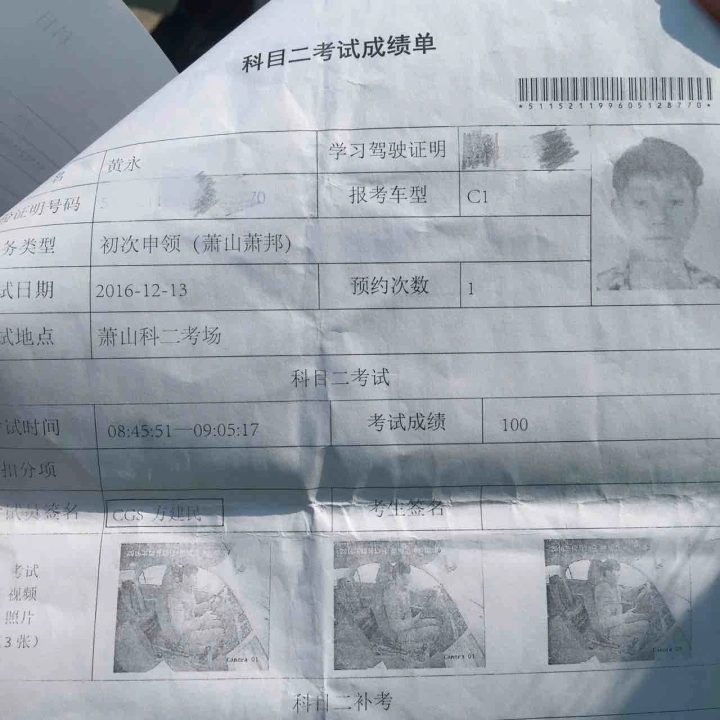 科目二考试成绩单
*511521199605128770*
名 黄永 学习驾驶证明
证明号码 报考车型 C1
务类型 初次申领（萧山萧邦）
试日期 2016-12-13 预约次数 1
试地点 萧山科二考场
科目二考试
试时间 08:45:51—09:05:17 考试成绩 100
扣分项
试员签名 CGS 方建民 考生签名
考试
视频
照片
（3 张）
Camera 01
科目二补考